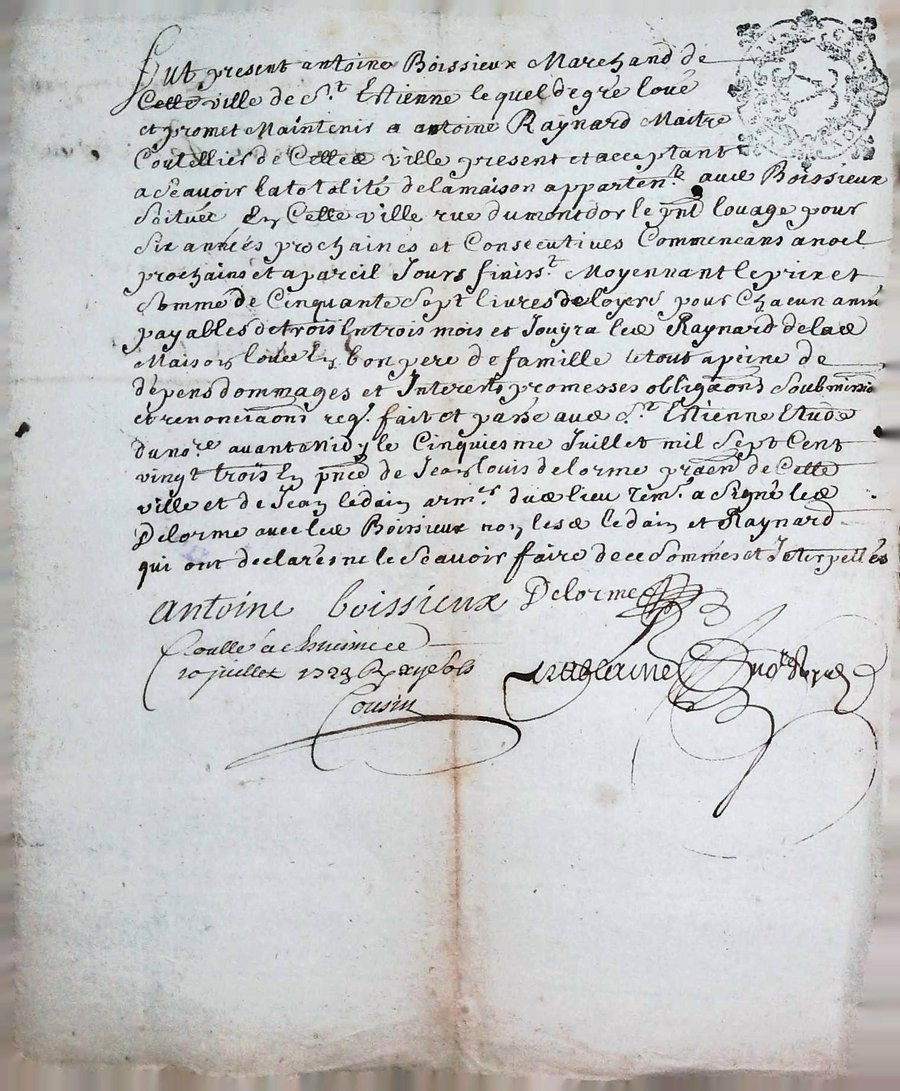 fut present antoine Boissieux Marchand de
Cette ville de St Estienne lequel de gré loue
et promet Maintenir a antoine Raynard Maitre
Coutellier de Cette ville present et acceptant
a Scavoir la totalité de la maison appartent aud Boissieux
Scituée En Cette ville rue du mont dor le pnt louage pour
Six années prochaines et Consecutives Commencans a noel
prochains et a pareil Jours finisst Moyennant le prix et
Somme de Cinquante Sept livres de loyers pour Chacun anné
payables de trois En trois mois et Jouyra led Raynard de lad
Maison louée En bon pere de famille le tout a peine de
depens dommages et Interents promesses obligaons Soubmissio
et renonciaons req. fait et passé aud St Estienne Etude
du nore avant Midy le Cinquiesme Juillet mil Sept Cent
vingt trois En pnce de Jean louis delorme praen de Cette
ville et de Jean ledain armr dud lieu temS a Signé led
Delorme avec led Boissieux non lesd ledain et Raynard
qui ont declarés ne le Scavoir faire de ce Sommés et Interpellés
antoine boissieux Delorme
Coullé a St Estienne ce
10 juillet 1723 R
Cousin